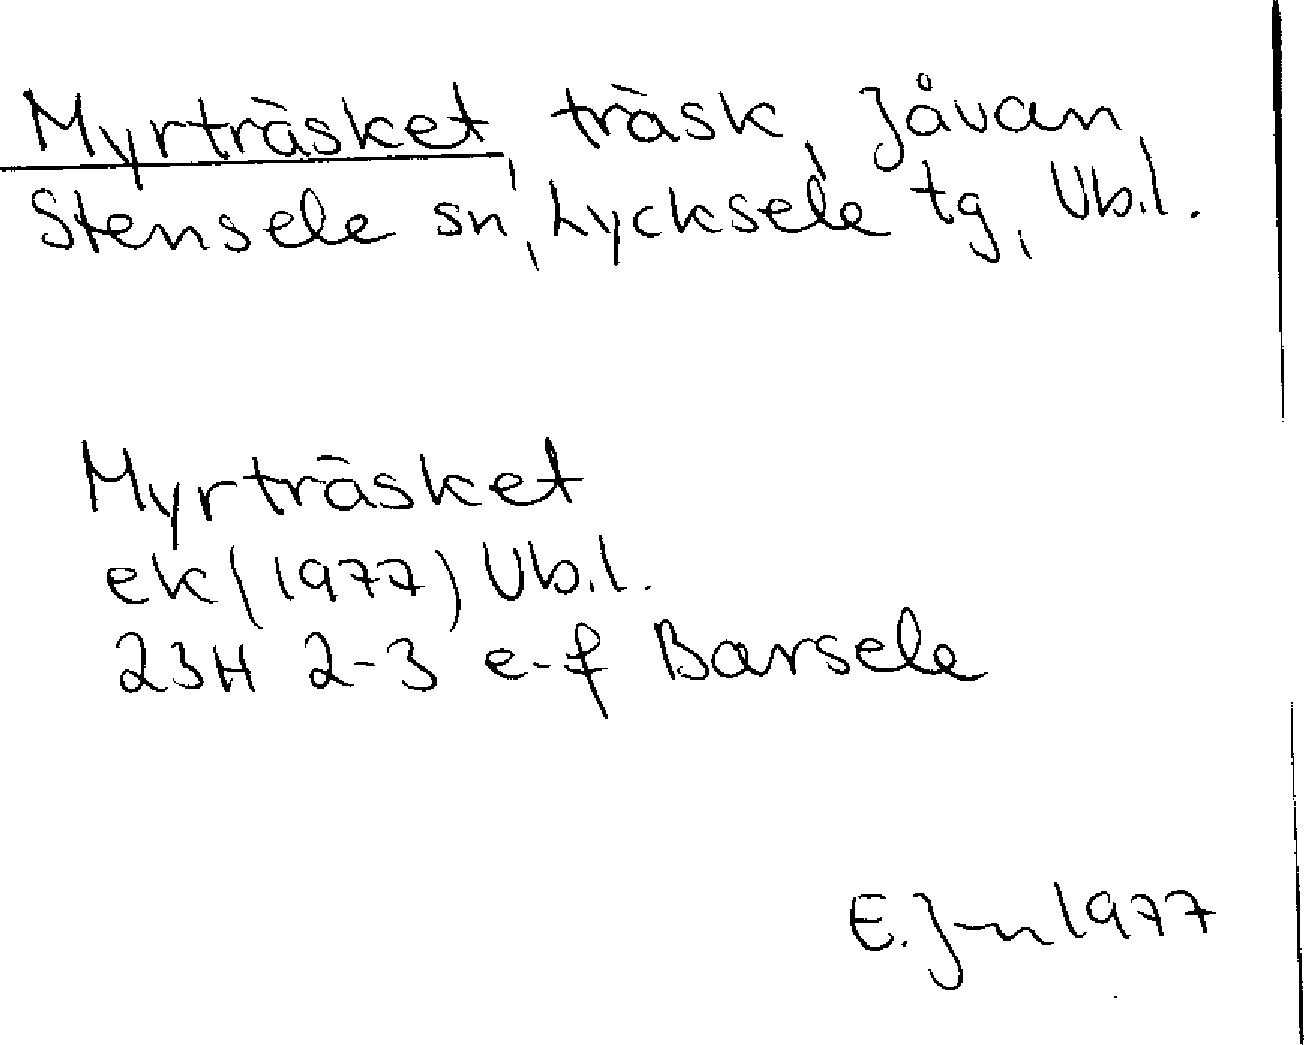 Myrträsket, träsk, Jåvan,
Stensele sn, Lycksele tg, Vb.l.
Myrträsket
ek (1977) Vb.l.
23H 2-3 e-f Barsele
E. 1977